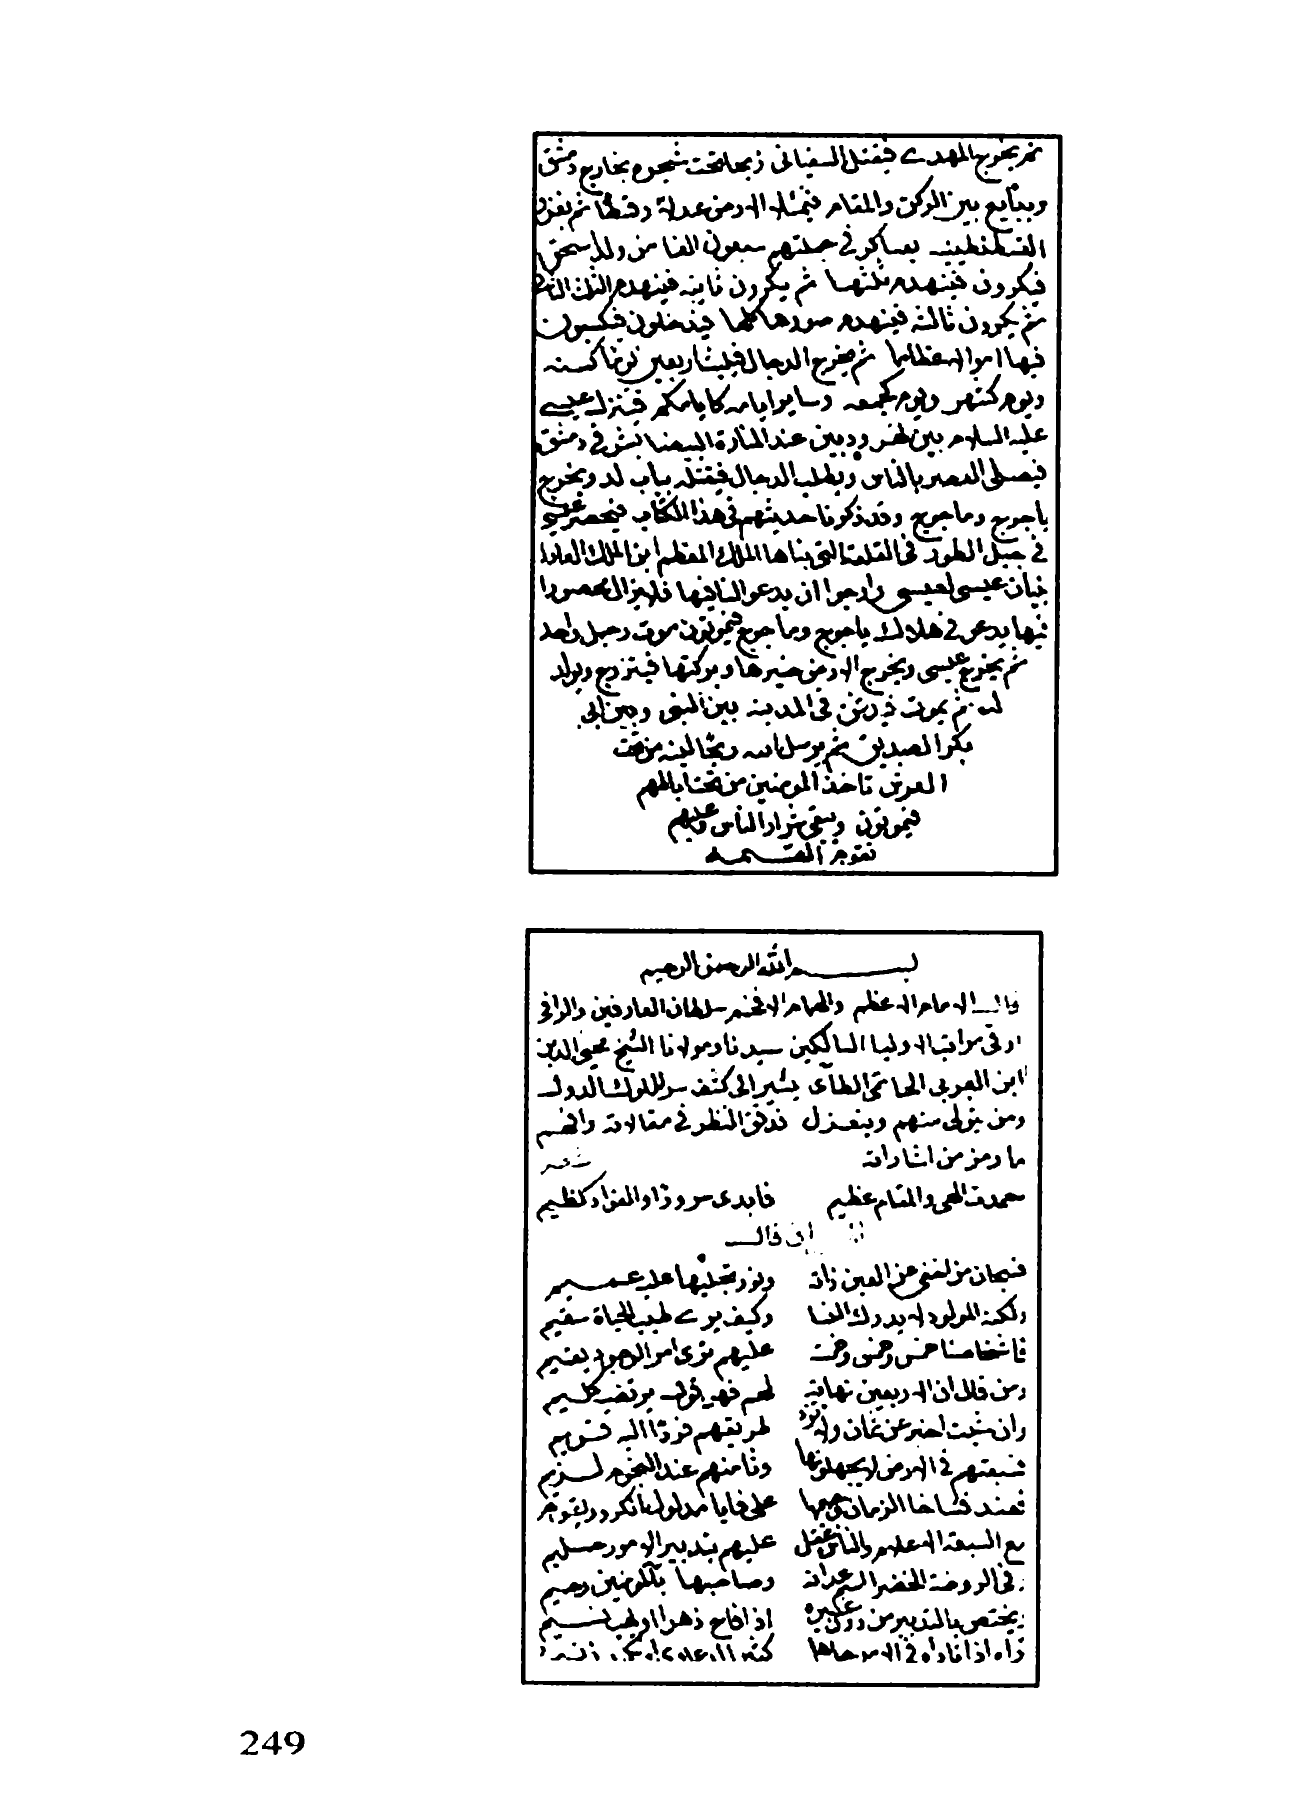 ثم يخرج المهدي فيقتل السفياني ذبحا تحت شجره بخارج دمشق
ويبايع بين الركن والمقام فيمتلا الارض عدلا وقسطا ثم يغزي
القسطنطينيه بعساكر في جملتهم سبعون الفا من ولد اسحق
فيكرون فينهدم ثلثها ثم يكرون ثانيه فينهدم الثلث الثاني
ثم يكرون ثالثه فينهدم صورها كلها فيدخلون فيكسبون
فيها اموالا عظاما ثم يخرج الدجال فيلبث اربعين يوما كسنه
ويوم كشهر ويوم كجمعه وساير ايامه كايامكم فينزل عيسى
عليه السلام بين عند المنارة البيضا بشرقي دمشق
فيصلي العصر بالناس ويطلب الدجال فيقتله بباب لد ويخرج
ياجوج وماجوج وقد ذكرنا حديثهم في هذا الكتاب فيحصر عيسى
في جبل الطور في القلعة التي بناها الملك المعظم ابن الملك العادل
عيسى لعيسى وارجوا ان يدعو لبانيها فلا يزال محصورا
فيها يدعو في هلاك ياجوج وماجوج فيموتون موت رجل واحد
ثم يخرج عيسى ويخرج الارض خيرها وبركتها فيتزوج ويولد
له ثم يموت فيدفن في المدينه بين النبي وبين ابي
بكر الصديق ثم يرسل الله ريحا لينه من تحت
العرش تاخذ المومنين من تحت اباطهم
فيموتون ويبقى شرار الناس وعليهم
تقوم القيمه
بسم الله الرحمن الرحيم
قال الامام الاعظم والهمام الافخم سلطان العارفين والراقي
ارقى مراقب الاوليا السالكين سيدنا ومولانا الشيخ محيي الدين
ابن العربي الحاتمي الطآى يشير الى كشف سر الملوك الدول
ومن يتولى منهم وينعزل فدقق النظر في مقالاته وافهم
ما رمز من اشاراته شعر
حمدت الهي والمقام عظيم فابدى سرورا والفواد كظيم
الى ان قال
فسبحان من اخفى عن العين ذاته ونور تجليها عليه عميم
ولكنه المولود لا يدرك وكيف يرى طيب الحياة سقيم
فاشخاصنا خمس وخمس وخمسة عليهم نرى امر الوجود يقيم
ومن قال ان الاربعين نهاية لهم فهو قول يرتضيه كليم
وان شيت اخبر عن ثمان ولا تزد طريقهم فردا اليه قويم
فسبعتهم في الارض لا يجهلونها وثامنهم عند النجوم لزيم
فعند فنا خا الزمان وجيمها على فا مدلول الكرور يقوم
مع السبعة الاعلام والناس غفل عليهم بتدبير الامور حليم
وفي الروضة الخضرا اسم عداته وصاحبها بالمومنين رحيم
ويختص بالتدبير من دون غيره اذا فاح زهر او يهب نسيم
تراه اذا ناواه في الامر جاهل كثير
249